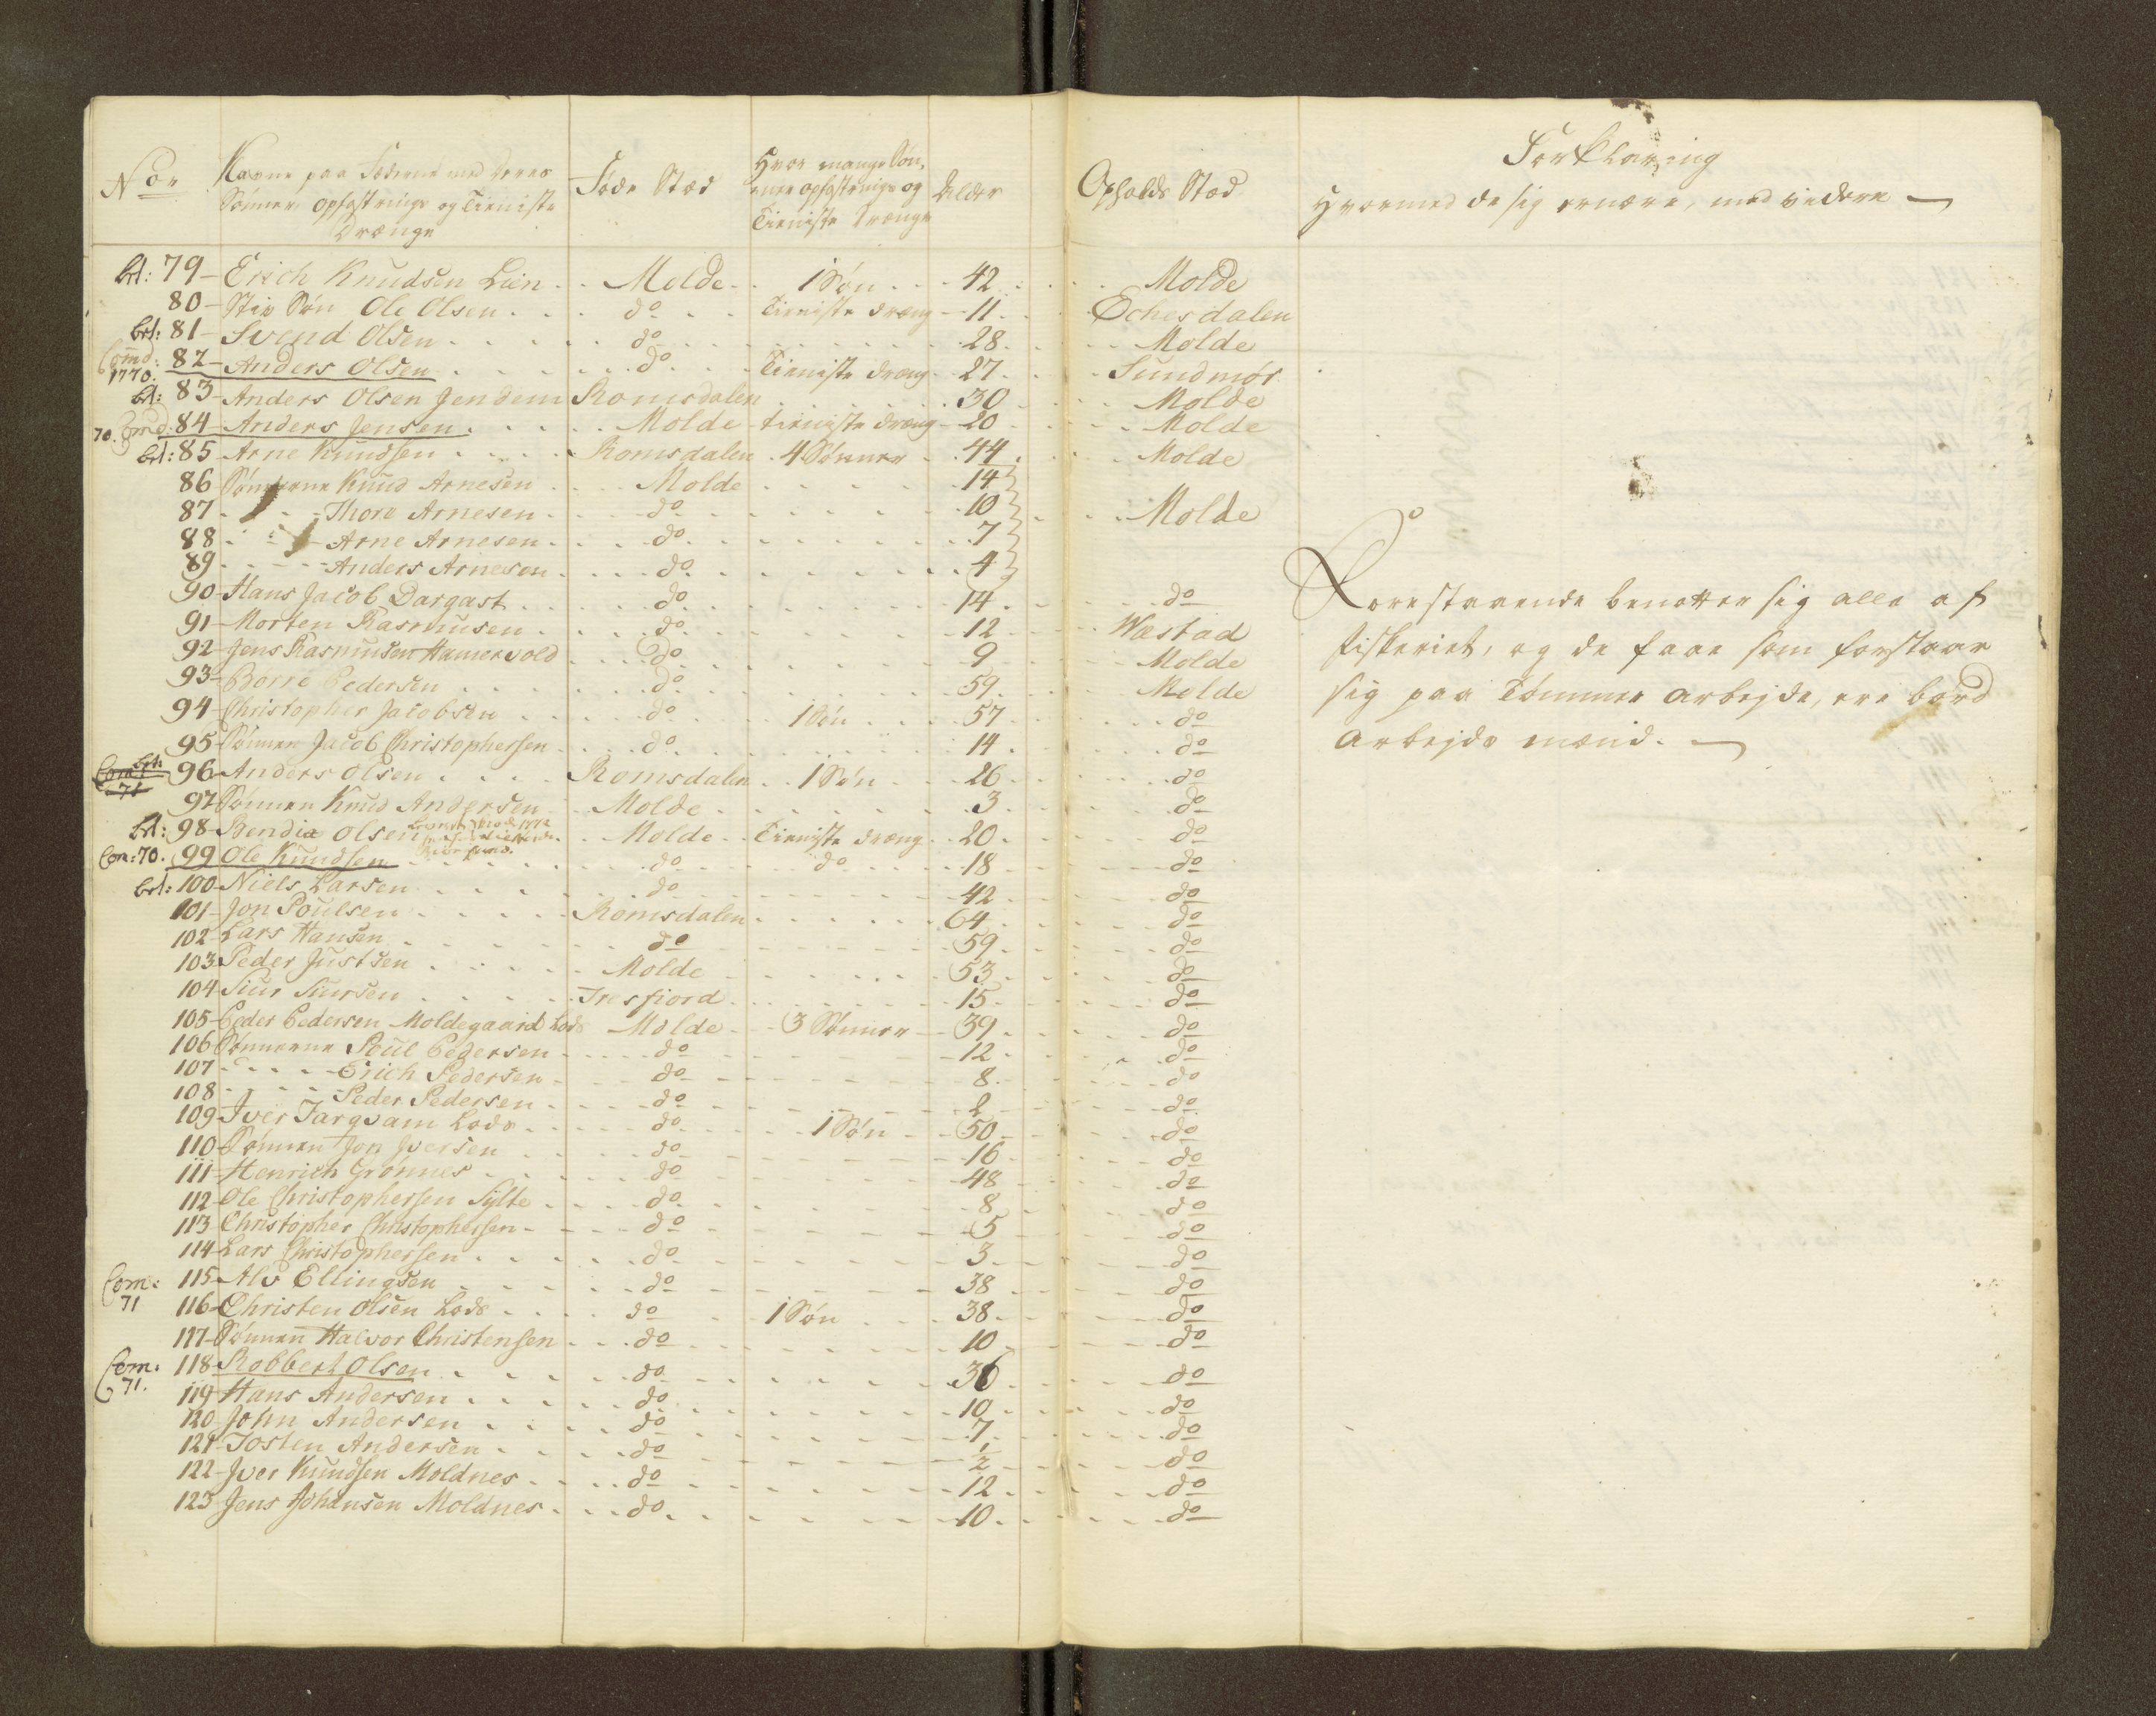 Nor Navne paa Fædrene med deres Føde Stæd Hvor mange Søn, Alder Opholds Stæd Forklaring
Sønner opfostrings og Tieniste nner opfostrings og Hvormed de sig ernære, med videre —
Drænge Tieniste Drænge
brl: 79 - Erich Knudsen Lien Molde 1 Søn 42 Molde
80 - Stiv Søn Ole Olsen do Tieniste dræng 11 Echesdalen
brl: 81 - Svend Olsen do 28 Molde
Comd: 1770. 82 - Anders Olsen do Tieniste dræng 27 Sundmør
brl: 83 - Anders Olsen Jendem Romsdalen 30 Molde
70. Comd. 84 - Anders Jensen Molde tieniste dræng 20 Molde
brl: 85 - Arne Knudsen Romsdalen 4 Sønner 44 Molde
86 Sønnerne Knud Arnesen Molde 14
87 - Thore Arnesen do 10 Molde
88 - Arne Arnesen do 7
89 - Anders Arnesen do 4
90 - Hans Jacob Dargast do 14 do
91 - Morten Rasmusen do 12 Wæstad
92 - Jens Rasmusen Hamervold do 9 Molde
93 - Borre Pedersen do 59 Molde
94 - Christopher Jacobsen do 1 Søn 57 do
95 Sønnen Jacob Christophersen do 14 do
Com: 71 brl: 96 - Anders Olsen Romsdalen 1 Søn 26 do
97 Sønnen Knud Andersen Molde 3 do
brl: 98 - Bendix Olsen Molde Tieniste dræng 20 do
Com: 70. 99 Ole Knudsen do do 18 do
brl: 100 - Niels Larsen do 42 do
101 - Jon Poulsen Romsdalen 64 do
102 - Lars Hansen do 59 do
103 Peder Justsen Molde 53 do
104 - Siur Siursen Tresfiord 15 do
105 - Peder Pedersen Moldegaard Lods Molde 3 Sønner 39 do
106 Sønnerne Poul Pedersen do 12 do
107 - Erich Pedersen do 8 do
108 - Peder Pedersen do 2 do
109 - Iver Targvam Lods do 1 Søn 50 do
110 - Sønnen Jon Iversen do 16 do
111 - Henrich Grønnes do 48 do
112 - Ole Christophersen Sylte do 8 do
113 Christopher Christophersen do 5 do
114 - Lars Christophersen do 3 do
Com: 71 115 - Als Ellingsen do 38 do
116 - Christen Olsen Lods do 1 Søn 38 do
117 - Sønnen Halvor Christensen do 10 do
Com: 71. 118 - Robbert Olsen do 36 do
119 Hans Andersen do 10 do
120 - John Andersen do 7 do
121 - Josten Andersen do ½ do
122 - Iver Knudsen Moldnes do 12 do
123 - Jens Johansen Moldnes do 10 do
Forestaaende benøtter sig alle af
fiskeriet, og de faae som forstaar
sig paa Tømmer arbejde, ere bord
arbejds mænd. —